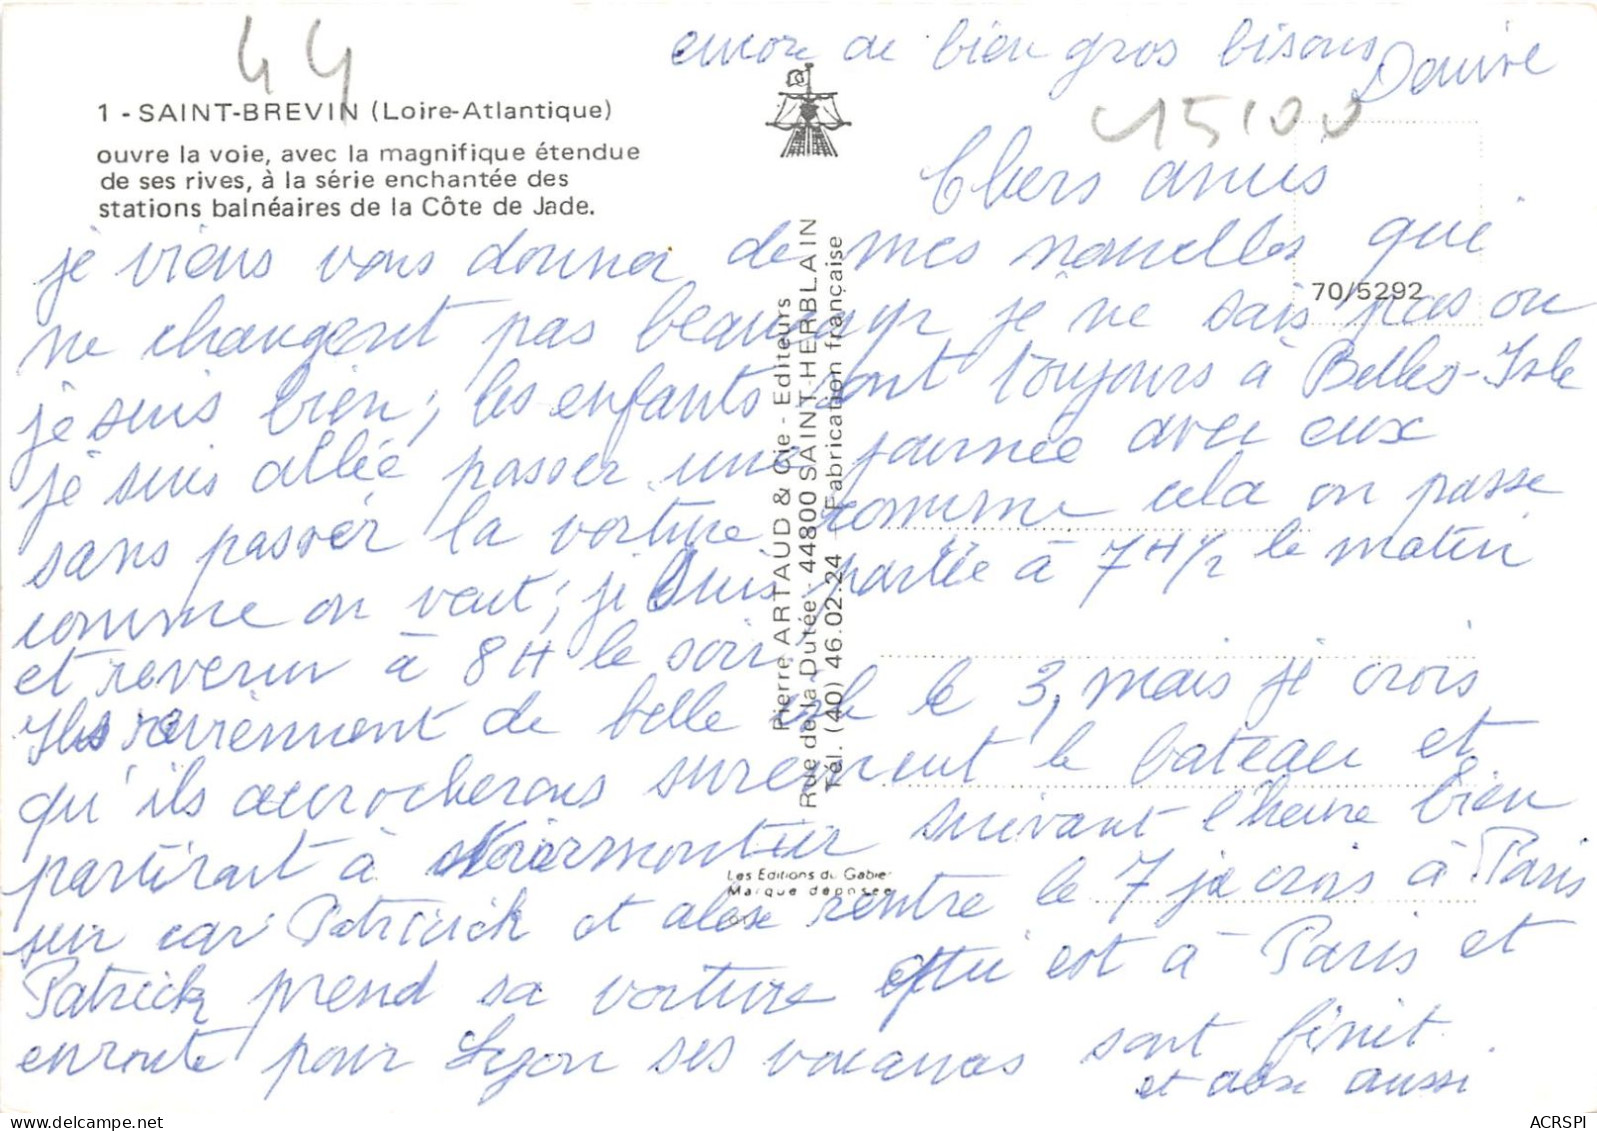 44
encore de bien gros bisous
1 - SAINT-BREVIN (Loire-Atlantique)
ouvre la voie, avec la magnifique étendue
de ses rives, à la série enchantée des
stations balnéaires de la Côte de Jade.
15100
70/5292
Chers amis
je viens vous donner de mes nouvelles qui
ne changent pas beaucoup je ne sais pas ou
je suis bien; les enfants sont toujours à Belles-Isle
je suis allée passer une journée avec eux
sans passer la voiture comme cela on passe
comme on veut; je suis partée à 7H1/2 le matin
et revenu à 8H le soir,
Ils reviennent de belle isle le 3, mais je crois
qu'ils accrocherons surement le bateau et
partirait à Noirmoutier suivant l'heure bien
sur car Patrick et alex rentre le 7 je crois à Paris
Patrick prend sa voiture qui est à Paris et
enroute pour Lyon ses vacanas sont finit.
et alex aussi
Pierre ARTAUD & Cie - Editeurs
Rue de la Dutée - 44800 SAINT-HERBLAIN
Tél. (40) 46.02.24 Fabrication française
Les Editions du Gabier
Marque déposée
ACRSPI